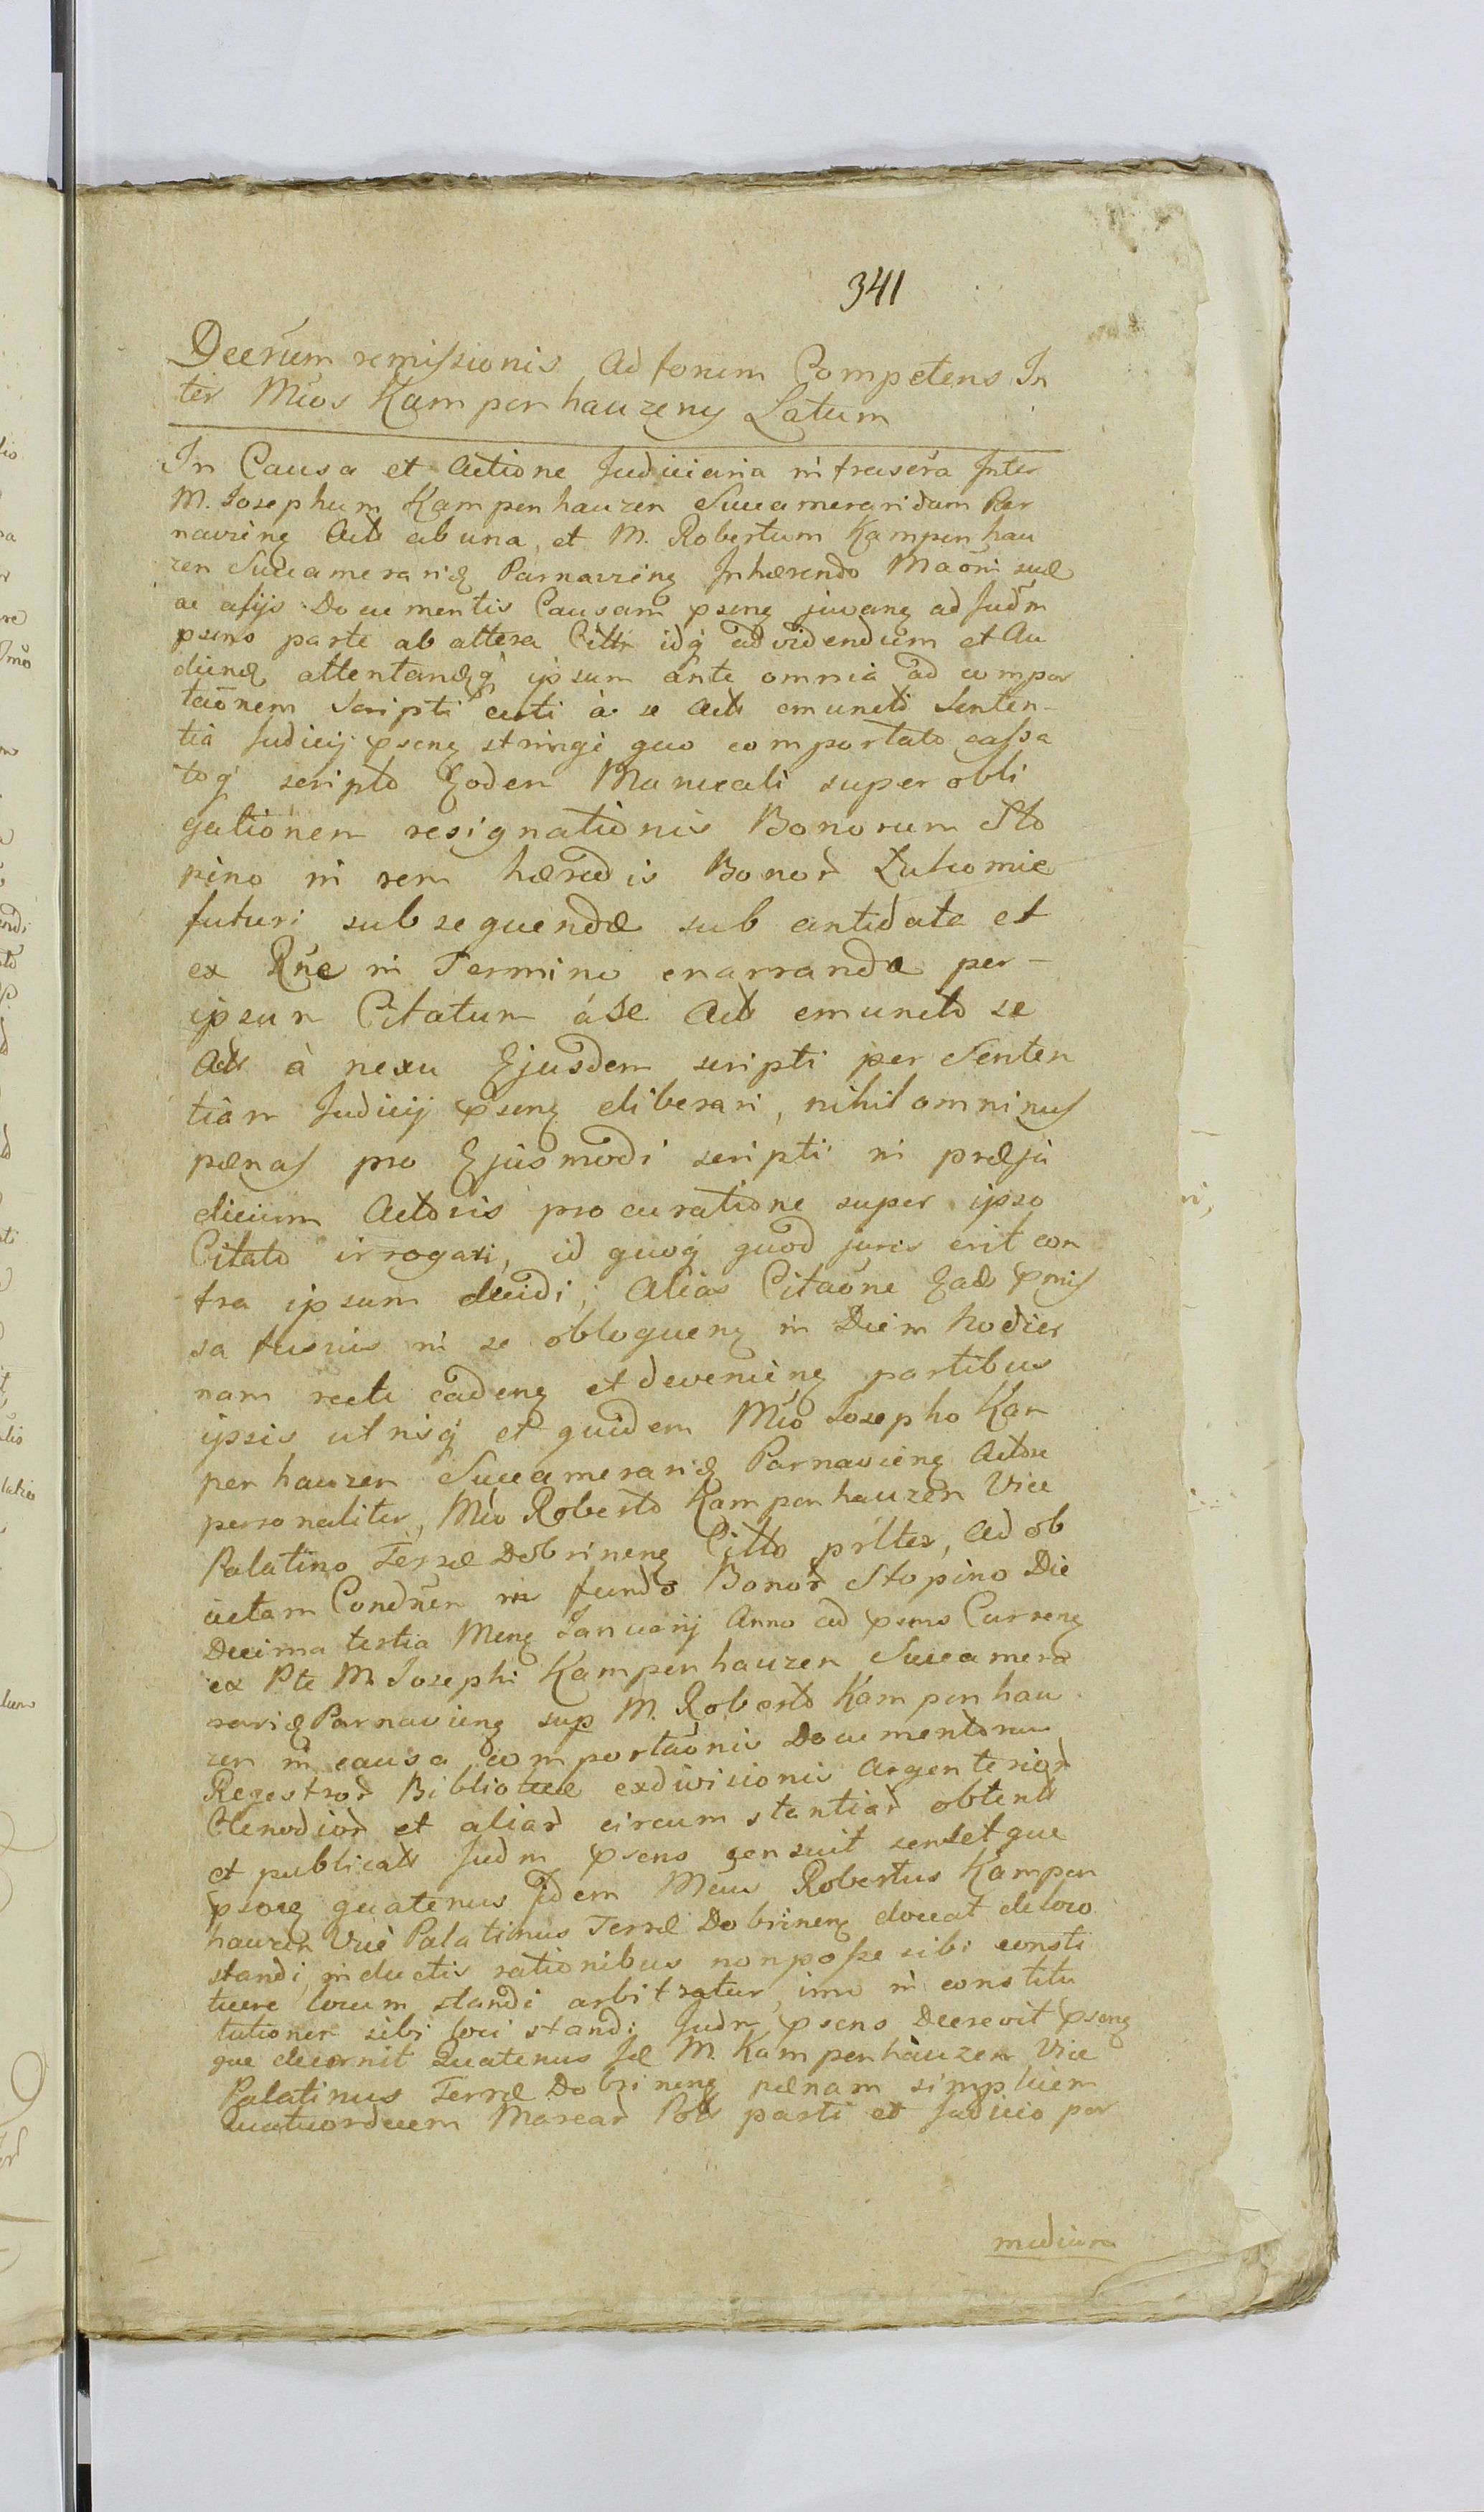 341
Decrum remissionis Ad forum Competens In
ter Mcos Kampenhauzeny Latum
In Causa et Actione Judiciaria infrascra Inter
M. Josephum Kampenhauzen Succameraridam Par
naviens Act ab una, et M. Robertum Kampenhau
zen Succamerarid Parnaviens Inhærendo Maoni suæ
ac alijs Documentis Causam psens juvans ad Judm
psens parte ab altera Cittr idq ad videndum et Au
diend attentandq ipsum ante omnia ad compor
taonem Scripti certi à se Act emuncti Senten-
tia Judicij psens stringi quo comportato cassa
toq scripto Eodem Manuali super obli
gationem resignationis Bonorum Sto
pino in rem hæredis Bonor Zuhomie
futuri subsequendæ sub antidata et
ex Rne in Termino enarranda per-
ipsum Citatum áse Act emuncto se
Act à nexu Ejusdem scripti per Senten
tiam Judicij psens eliberari, nihilominus
pænas pro Ejusmodi scripti in præju
dicium Actoris procuratione super ipso
Citato irrogari, id quoq quod juris erit con
tra ipsum decidi; Alias Citaone Ead pmis
sa fusius in se obloquens in Diem hodier
nam recte cadens et deveniens partibus
ipsis utrisq et quidem Mco Josepho Kam
penhauzen Succamerarid Parnaviens Actore
personaliter, Mco Roberto Kampenhauzen Vice
Palatino Terræ Dobrinens Citto prlter, Ad ob
uctam Condnem in fundo Bonor Stopino Die
Decima tertia Mens Januarij Anno ad psens Currens
ex Pte M. Josephi Kampenhauzen Succamera
rarid Parnaviens sup M. Roberto Kampenhau
zen in causa comportaonis Documentorum
Regestror Bibliotecæ exdivisionis Argenterior
Clenodior et aliar circumstantiar obtent
et publicat Judm psens censuit censetque
psens quatenus Idem Mcus Robertus Kampen
hauzen Vice Palatinus Terræ Dobrinens doceat de loco
standi, inductis rationibus nonposse sibi consti
tuere locum standi arbitratur, imo in constitu
tutionem sibi loci standi Judm psens Decrevit psens
que decernit Quatenus Id M. Kampenhauzen Vice
Palatinus Terræ Dobrinens pænam simplicem
Quatuordecem Marcar Pol parti et Judicio per
medium